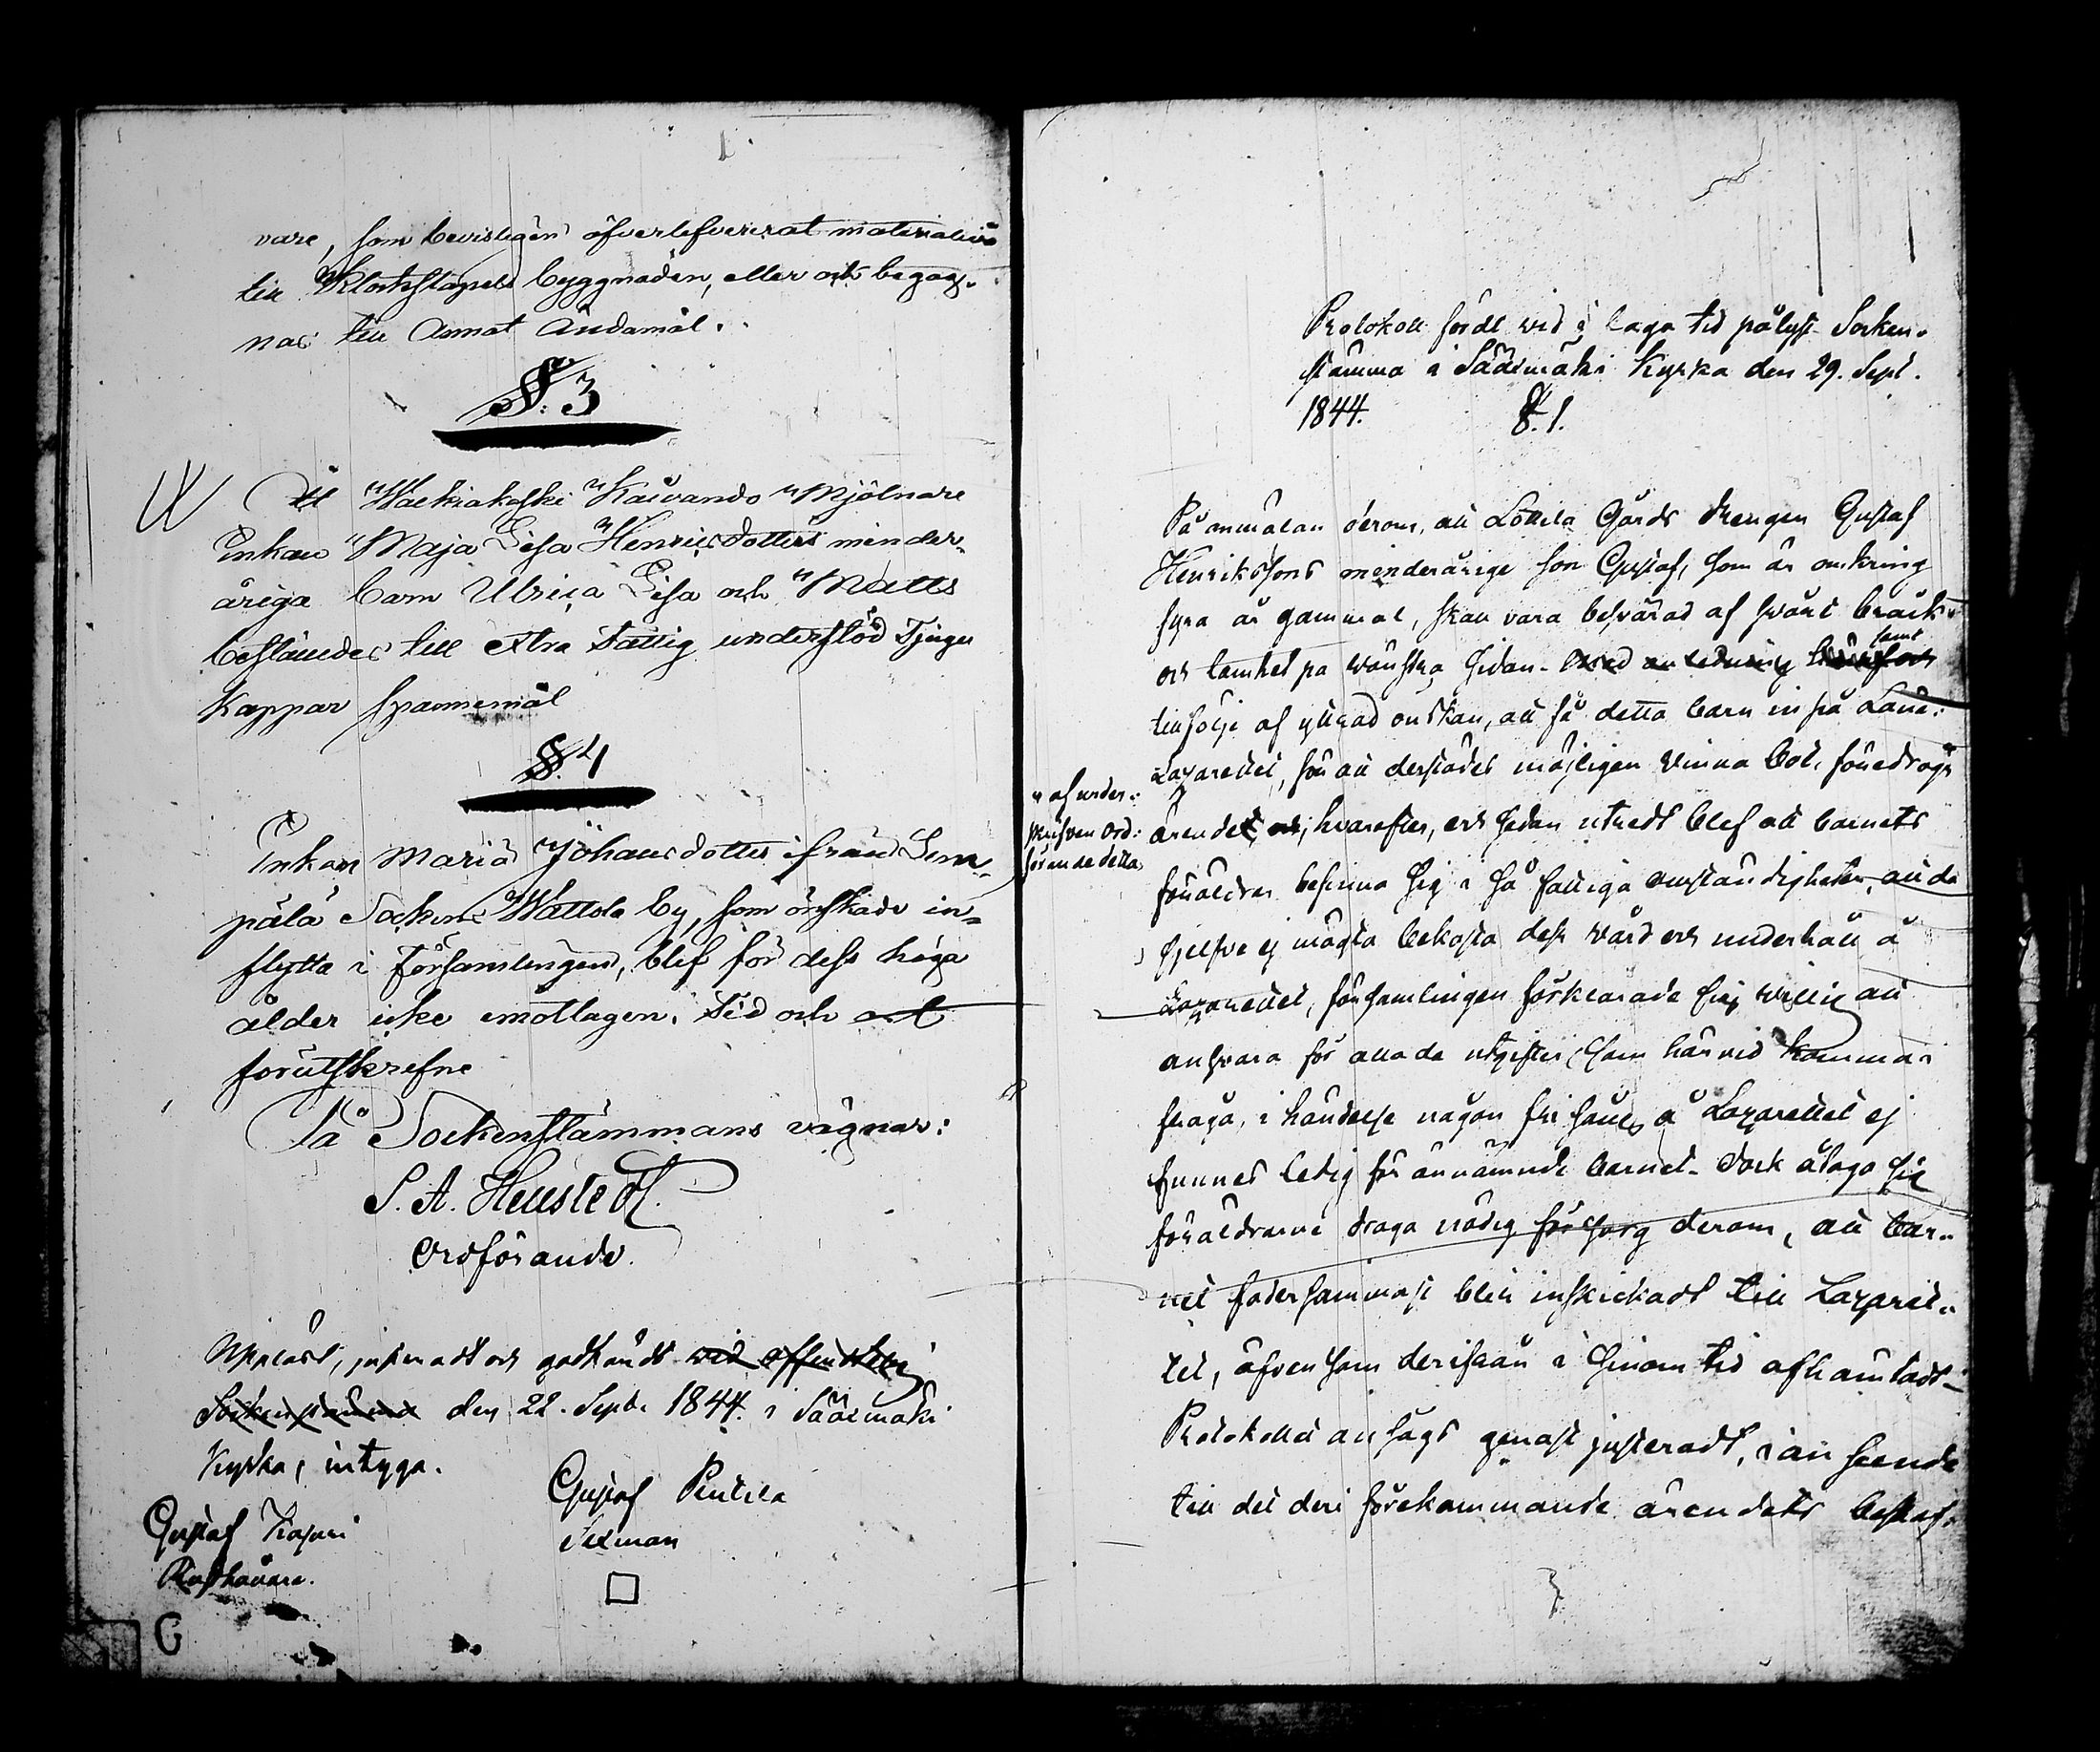 vare, som bevisligen öfverlefvererat materialier
till Klockstapels byggnaden, eller och begag-
nas till Annat Ändamål.
§. 3
Åt Walkiakoski Kaivando Mjölnare
Enkan Maja Lisa Henricsdotters minder-
åriga barn Ulrica Lisa och Matts
bestämdes till extra Fattig understöd Tjugu
Kappar spannemål
§. 4
Enkan Maria Johansdotter ifrån Lem-
pälä Socken Wattola by, som önskade in-
flytta i Församlingen, blef för dess höga
ålder icke emottagen. Tid och ort
förutskrefne
På Sockenstämmans vägnar:
S. A. Hellstedt
Ordförande.
Uppläst, justeradt och godkändt wid offentelig
Sockenstämma den 22. Septr 1844. i Sääxmäki
Kyrka, intyga.
Gustaf Pentila
Gustaf Kajuri
Texman
Rusthållare.
Protokoll fördt wid i laga tid pålyst Socken-
stämma i Sääxmäki Kyrka den 29. Sept.
1844. §. 1.
På anmälan derom, att Lottila Gårds drengen Gustaf
Henrikssons minderårige son Gustaf, som är omkring
fyra år gammal, skall vara besvärad af svårt bråck
samt
och lamhet på wänstra sidan. med anledning
tillföljе af yttrad önskan, att få detta barn in på Läne-
Lazarettet, för att derstädes möjligen vinna bot, föredrogs
" af under-
skrifven Ord-
förande detta
ärendet och, hvarefter, och sedan utredt blef att barnets
föräldrar befinna sig i så fattiga omständigheter, att de
sjelfve ej mägta bekosta dess vård och underhåll å
Lazarettet, församlingen förklarade sig willig att
ansvara för alla de utgifter, som härvid komma i
fråga, i händelse någon fri säng å Lazarettet ej
funnes ledig för ännämnde barnet. Dock åtaga sig
föräldrarne draga nödig försorg derom, att bar-
net fodersammast blir inskickadt till Lazaret-
tet, äfvensom derifrån i sinom tid afhämtadt.
Protokollet ansågs genast justeradt, i anseende
till det deri förekommande ärendets beskaf-